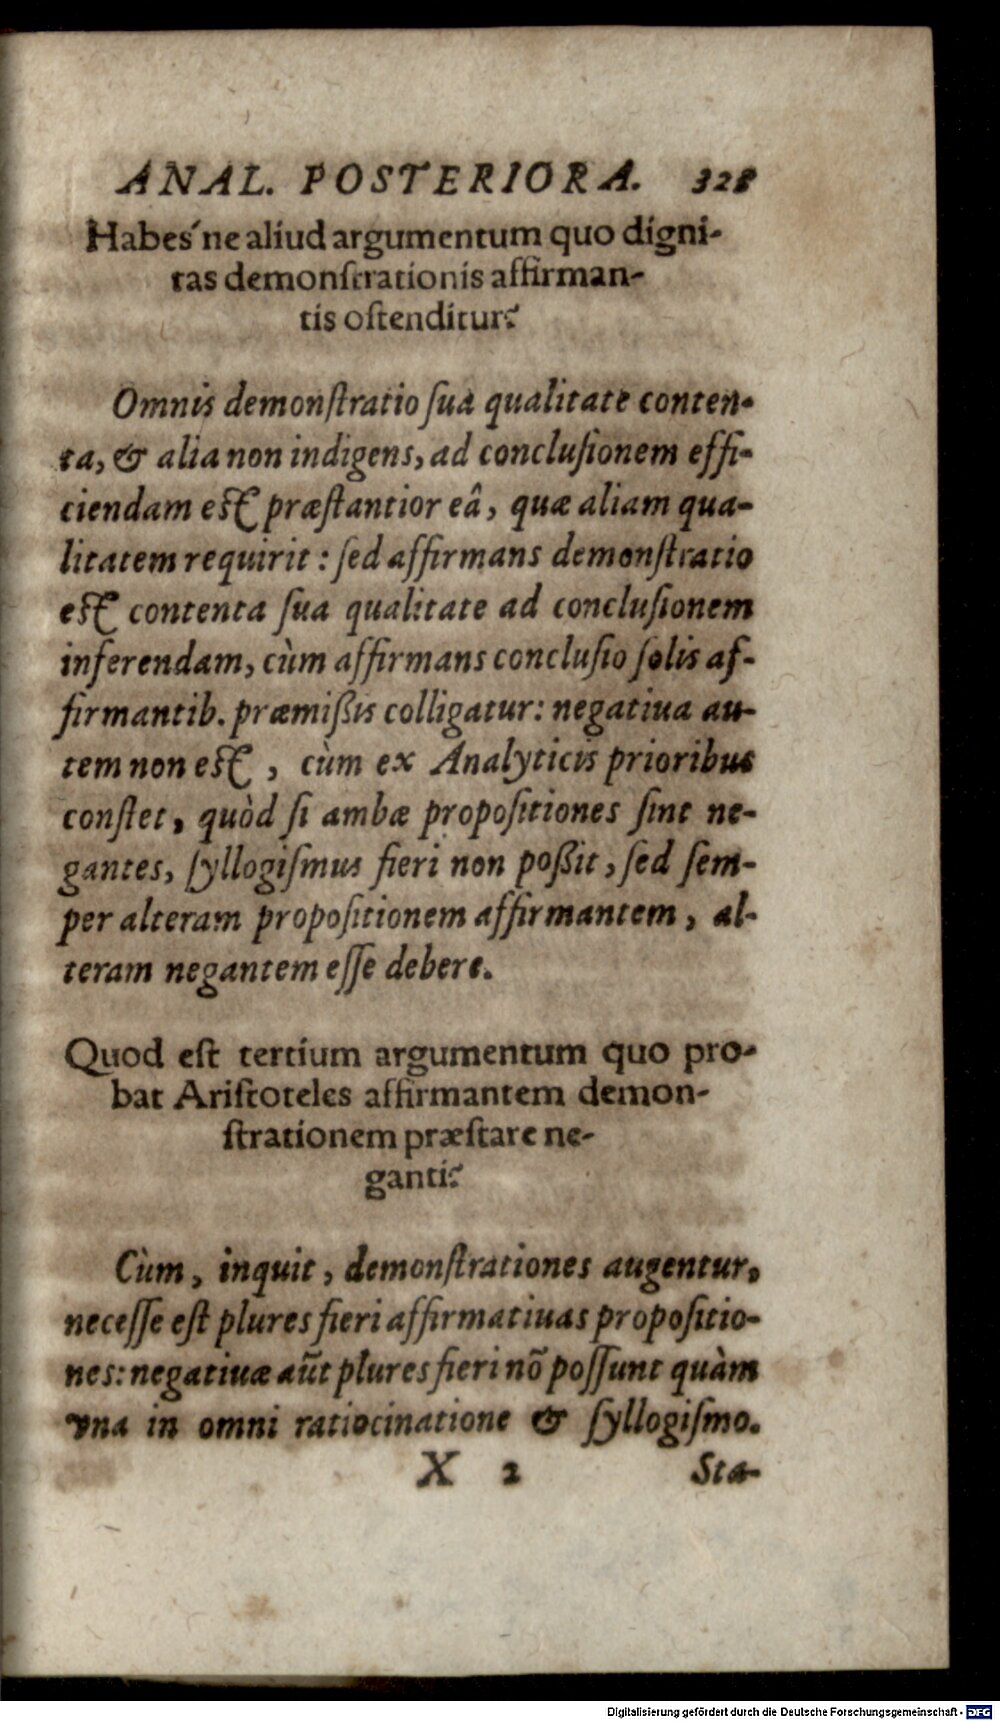 ANAL. POSTERIORA. 328
Habes´ne aliud argumentum quo digni-
tas demonſtrationis affirman-
tis oſtenditur?
Omnis demonſtratio ſua qualitate conten-
ta, & alia non indigens, ad concluſionem effi-
ciendam eſt præſtantior eâ, quæ aliam qua-
litatem requirit: ſed affirmans demonſtratio
eſt contenta ſua qualitate ad concluſionem
inferendam, cùm affirmans concluſio ſolis af-
firmantib. præmißis colligatur: negatiua au-
tem non eſt, cùm ex Analyticis prioribus
conſtet, quòd ſi ambæ propoſitiones ſint ne-
gantes, ſyllogiſmus fieri non poßit, ſed ſem-
per alteram propoſitionem affirmantem, al-
teram negantem eſſe debere.
Quod eſt tertium argumentum quo pro-
bat Ariſtoteles affirmantem demon-
ſtrationem præſtare ne-
ganti?
Cùm, inquit, demonſtrationes augentur,
neceſſe eſt plures fieri affirmatiuas propoſitio-
nes: negatiuæ aũt plures fieri nõ poſſunt quàm
vna in omni ratiocinatione & ſyllogiſmo.
X 2 Sta-
Digitalisierung gefördert durch die Deutsche Forschungsgemeinschaft - DFG